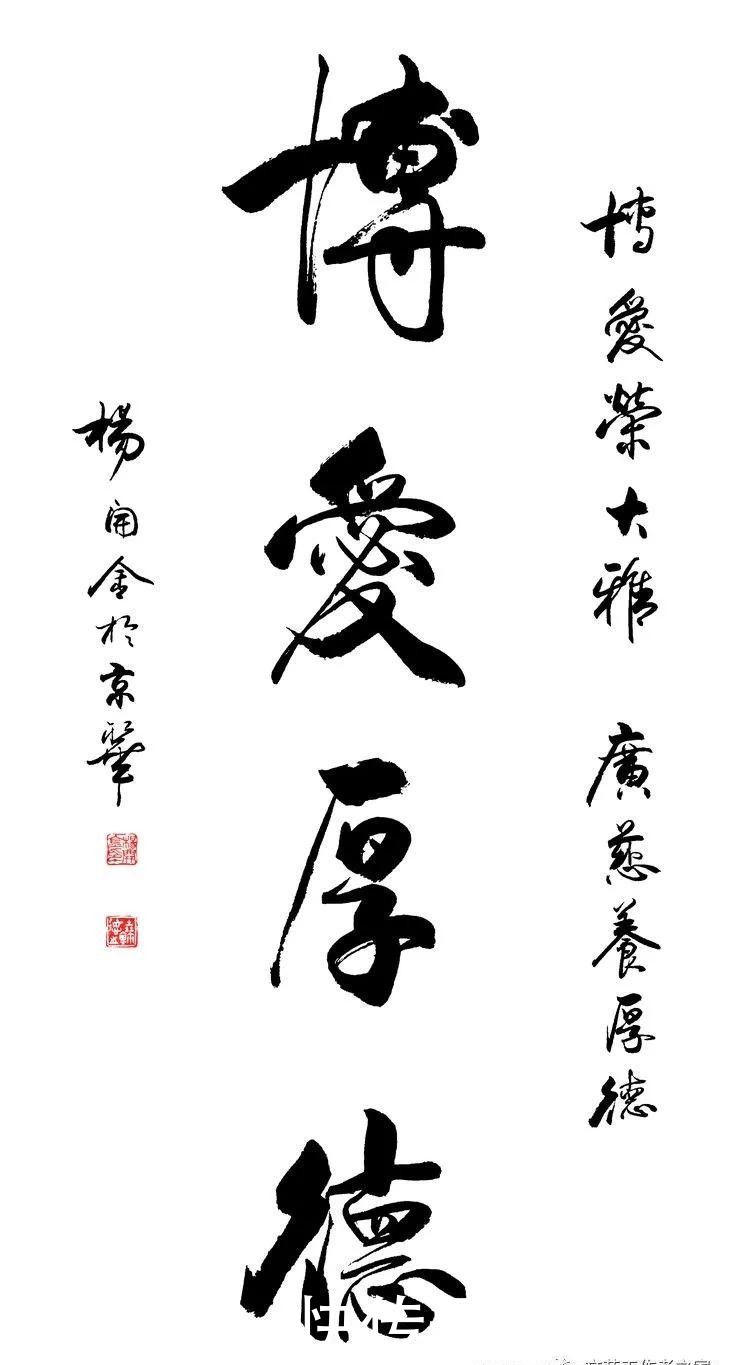 博愛榮大雅 廣慈養厚德
博愛厚德
楊開金於京華
快传